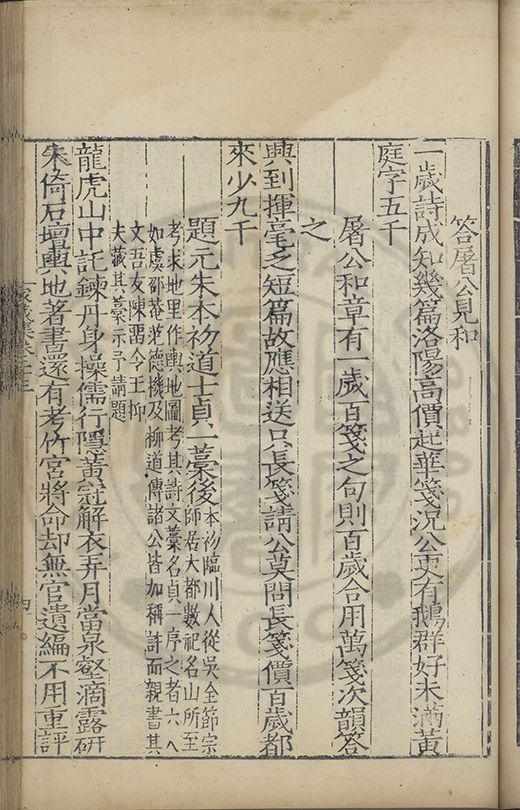 答屠公見和
一歲詩成知幾篇洛陽高價起華箋況公更有鵝群好未滿黃
庭字五千
屠公和章有一歲百箋之句則百歲合用萬箋次韻答
之
興到揮毫之短篇故應相送只長箋請公莫問長箋價百歲都
來少九千
題元朱本初道士貞一藁後本初臨川人從吳全節宗
師居大都數祀名山所至
考求地里作輿地圖考其詩文藁名貞一序之者六人
如虞邵菴范德機及柳道傳諸公皆加稱許而親書其
文吾友陳留令王抑
夫藏其藁示予請題
龍虎山中託鍊丹身操儒行隱黃冠解衣弄月當泉壑滴露研
朱倚石壇輿地著書還有考竹宮將命却無官遺編不用重評
四